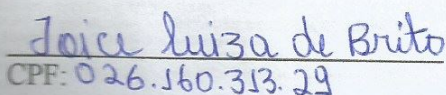 Joice Luiza de Brito
CPF: 026.160.313.29